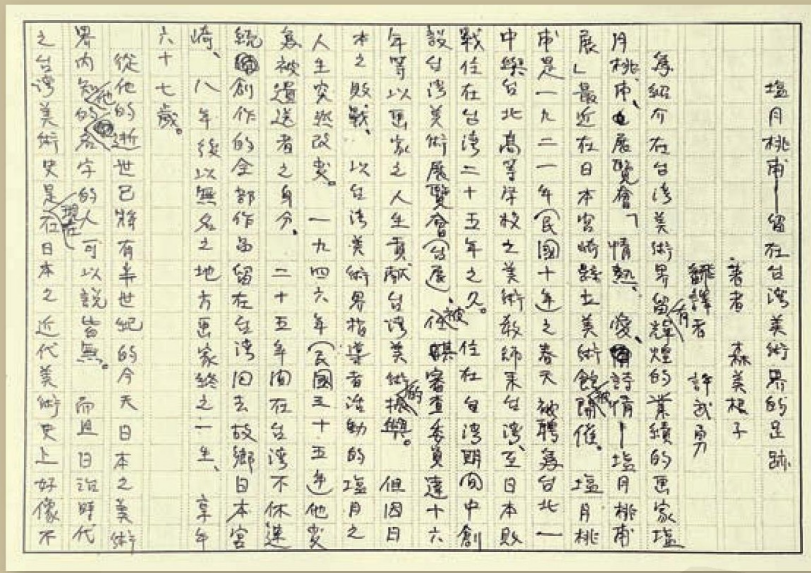 塩月桃甫—留在台湾美術界的足跡
著者 森美根子
翻譯者 許武勇
為紹介在台湾美術界留有輝煌的業績的画家塩
月桃甫、展覽會「情熱、愛、詩情—塩月桃甫
展」最近在日本宮崎縣立美術館被開催。塩月桃
甫是一九二一年(民國十年)之春天被聘為台北一
中與台北高等学校之美術教師来台湾、至日本敗
戦住在台湾二十五年之久。住在台湾期间中創
設台湾美術展覽會(台展)、被任審査委員達十六
年等以画家之人生貢献台湾美術的振興。但因日
本之敗戦、以台湾美術界指導者活動的塩月之
人生突然改変。一九四六年(民國三十五年)他変
為被遣送者之身分、二十五年间在台湾不休連
続創作的全部作品留在台湾回去故鄉日本宮
崎、八年後以無名之地方画家終之一生、享年
六十七歲。
從他的逝世已將有半世紀的今天日本之美術
界内知他的名字的人可以説皆無。而且日治時代
之台湾美術史是現在在日本之近代美術史上好像不